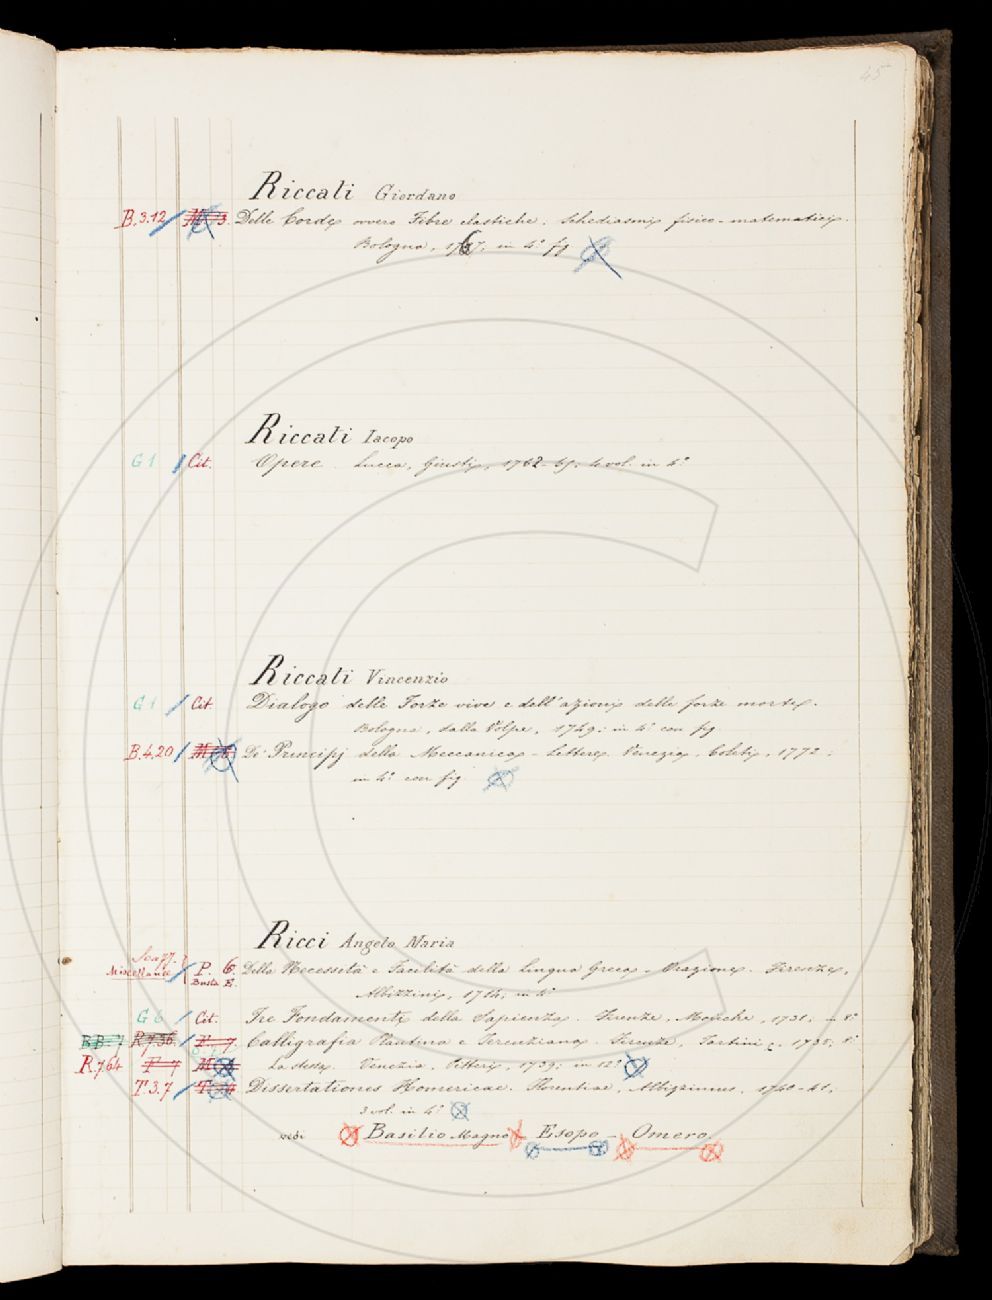 45
Riccati Giordano
B.3.12 3. Delle Corde ovvero Fibre elastiche. Schediasmi fisico-matematici.
Bologna, 1767, in 4° fig
Riccati Iacopo
G 1 Cit. Opere. Lucca, Giusti, 1762-65. 4 vol. in 4°
Riccati Vincenzio
G 1 Cit. Dialogo delle Forze vive e dell'azioni delle forze morte.
Bologna, dalla Volpe, 1749; in 4° con fig
B.4.20 De' Principj della Meccanica - Lettere. Venezia, Coleti, 1772;
in 4° con fig
Ricci Angelo Maria
Miscellanee P. 6. Della Necessità e Facilità della lingua Greca - Orazione. Firenze,
Busta E.
Albizzini, 1714; in 4°
G 6 Cit. Tre Fondamenti della Sapienza. Firenze, Moücke, 1731; in 8°
B.B.7 R.7.36. Calligrafia Plautina e Terenziana. Firenze, Tartini, 1735, 8°
R.7.64 La stessa. Venezia, 1739; in 12°
T.3.7 Dissertationes Homericae. Florentiae, Albizzinus, 1740-41,
3 vol. in 4°
vedi Basilio Magno - Esopo - Omero.